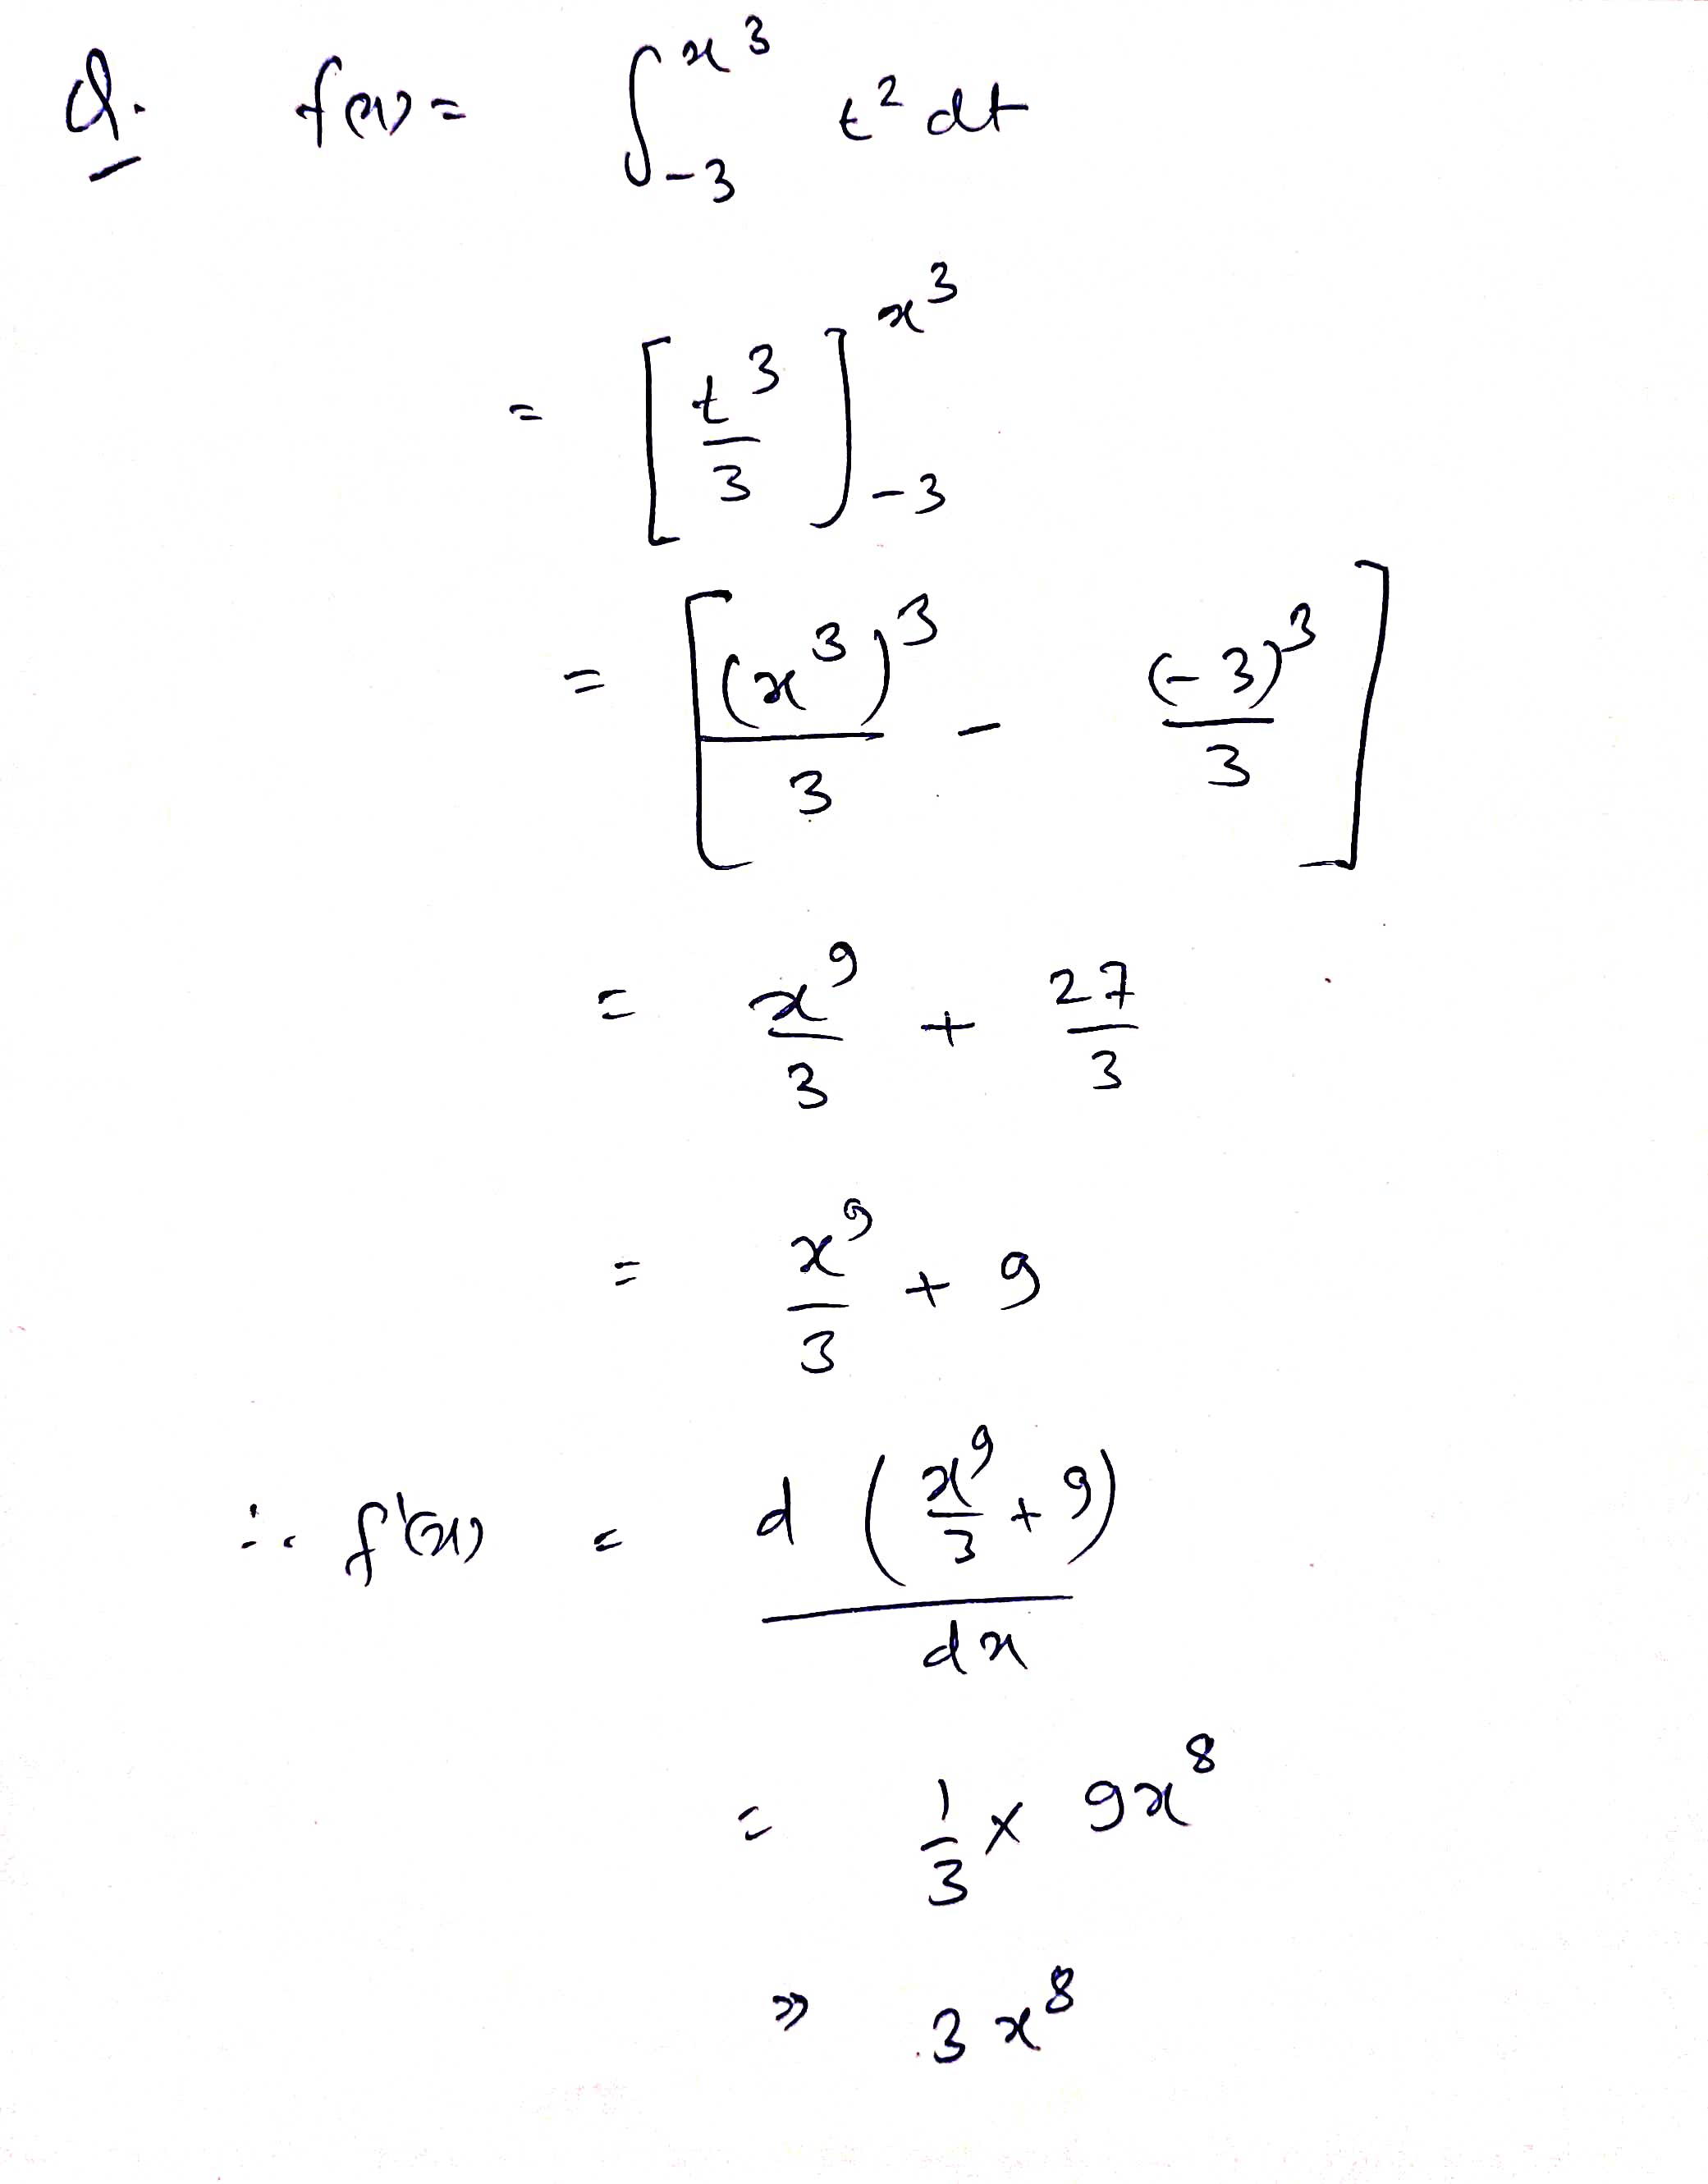 Q. f(x) = ∫_{-3}^{x^3} t^2 dt
= [t^3/3]_{-3}^{x^3}
= [(x^3)^3/3 - (-3)^3/3]
= x^9/3 + 27/3
= x^9/3 + 9
∴ f'(x) = d(x^9/3 + 9)/dx
= 1/3 × 9x^8
» 3x^8